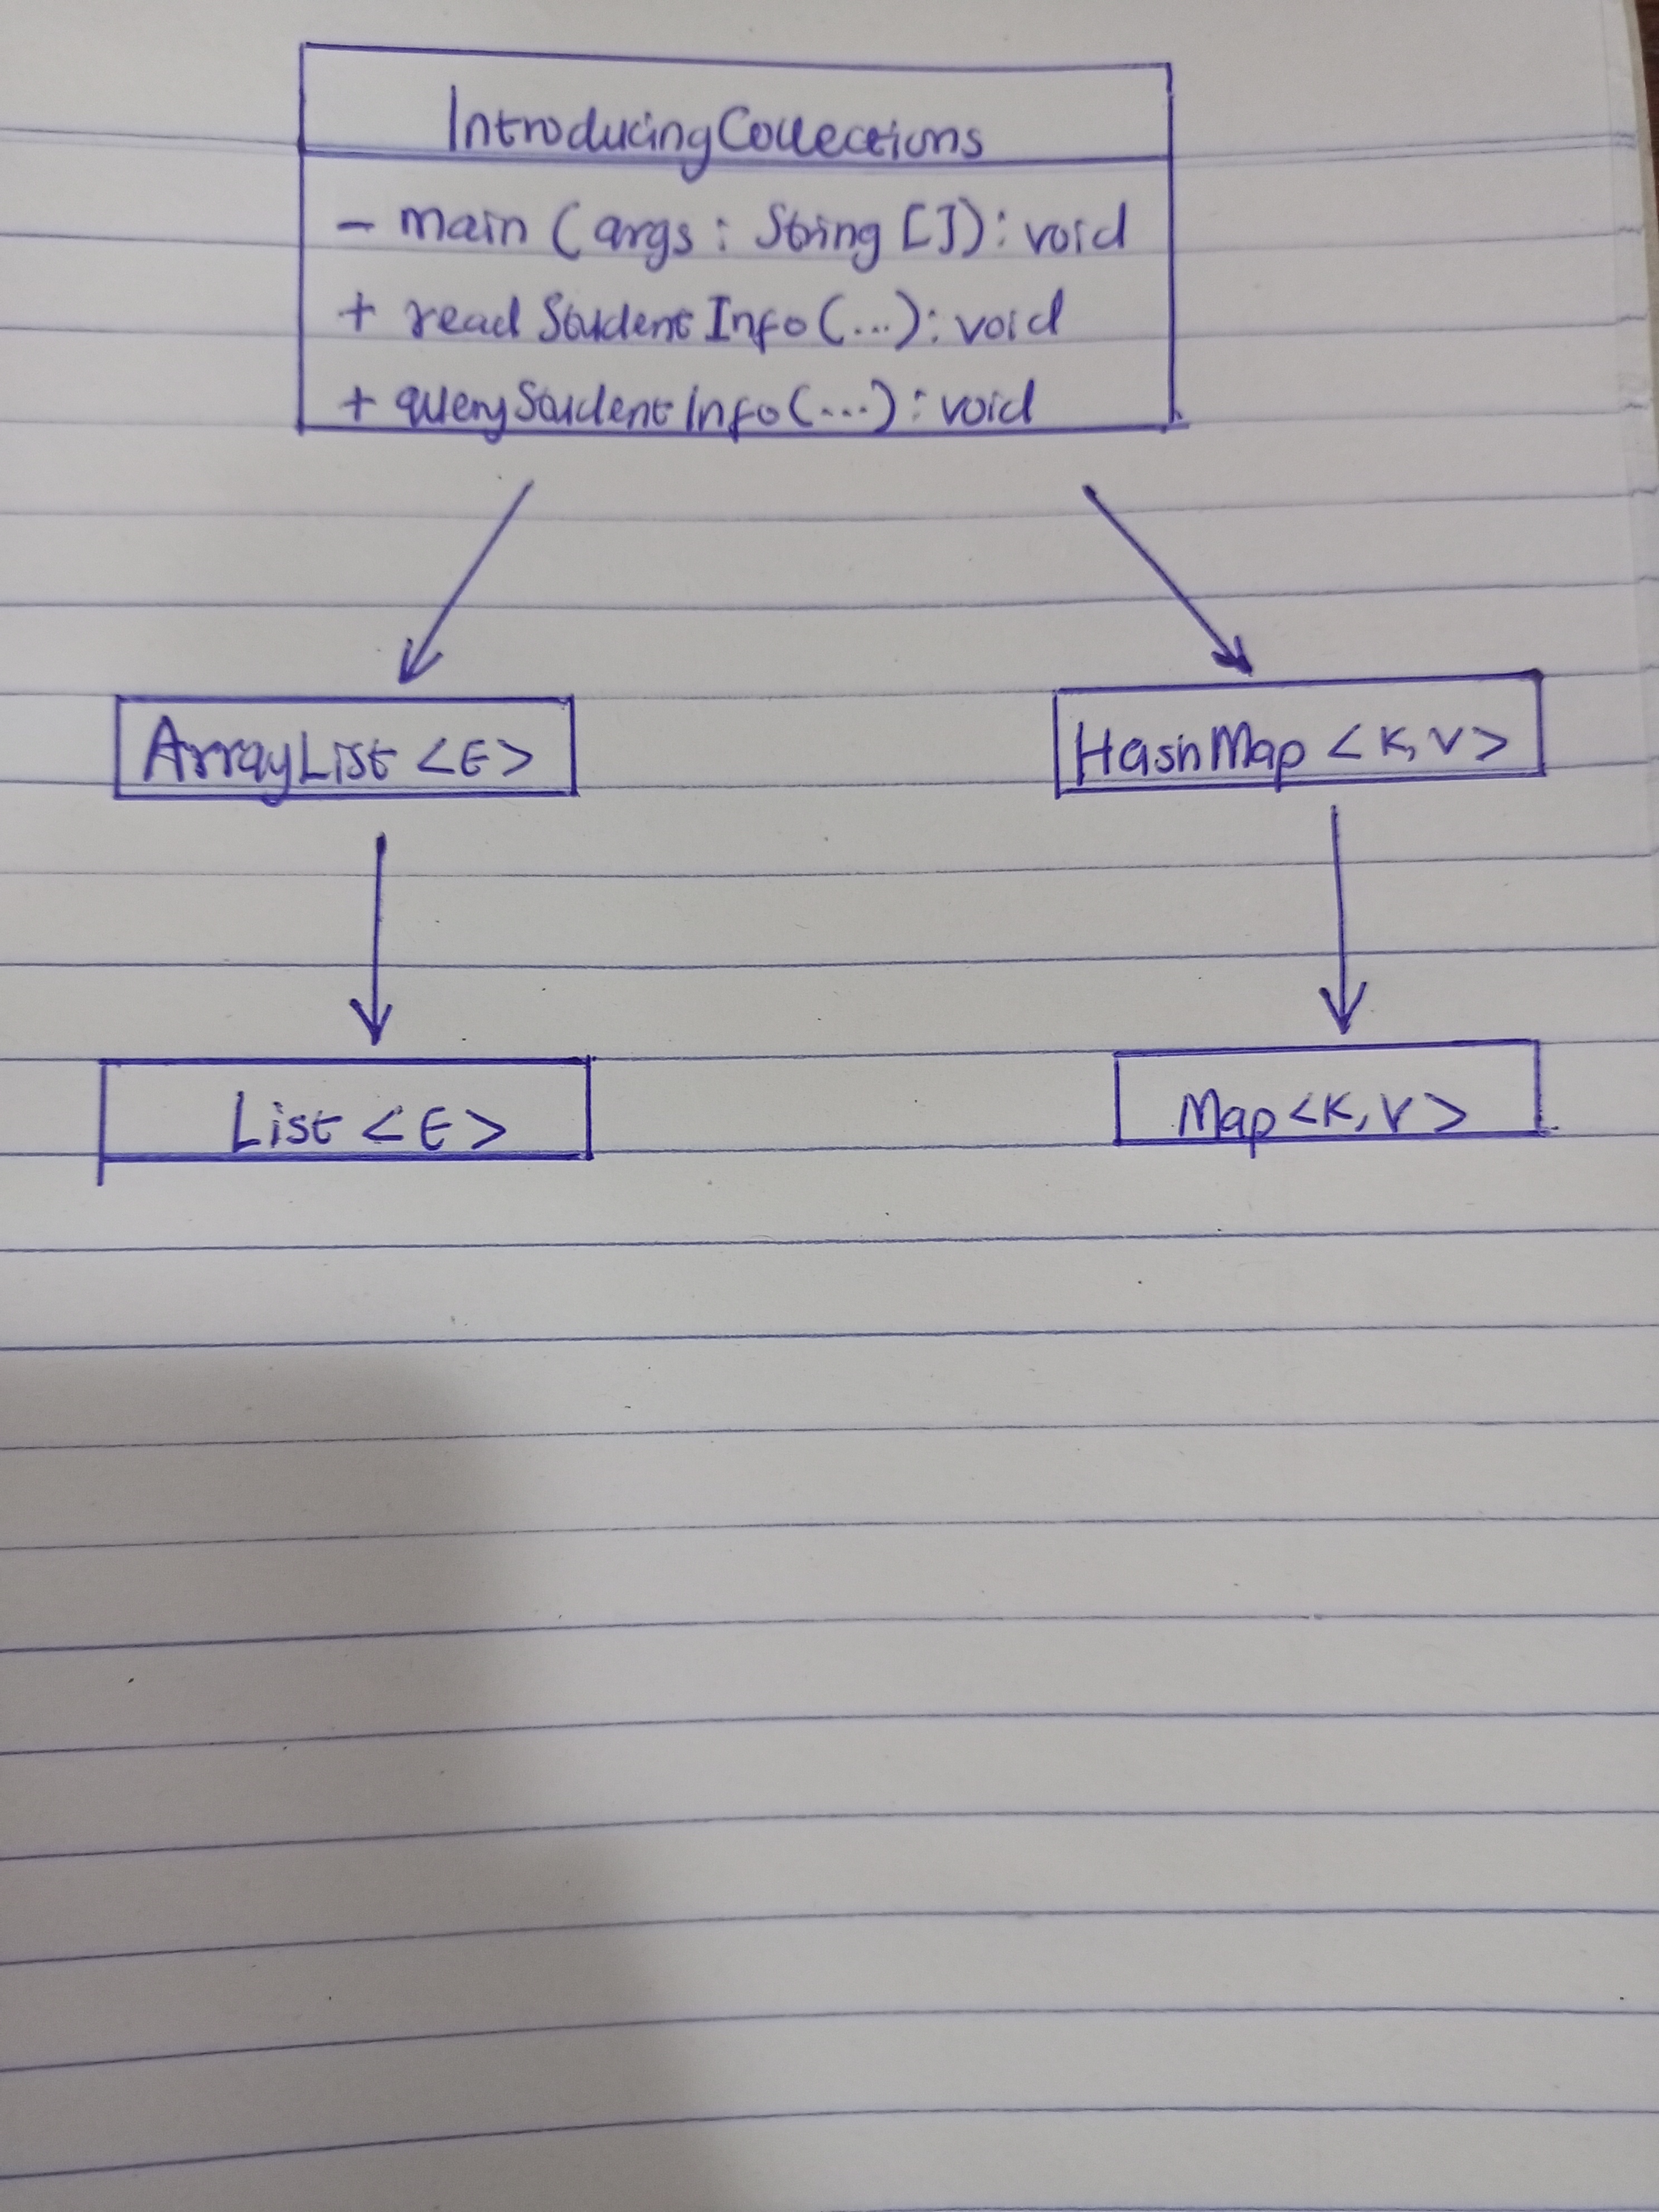 IntroducingCollections
- main (args : String []) : void
+ readStudentInfo (...) : void
+ queryStudentInfo (...) : void
ArrayList <E>
HashMap <K, V>
List <E>
Map <K, V>